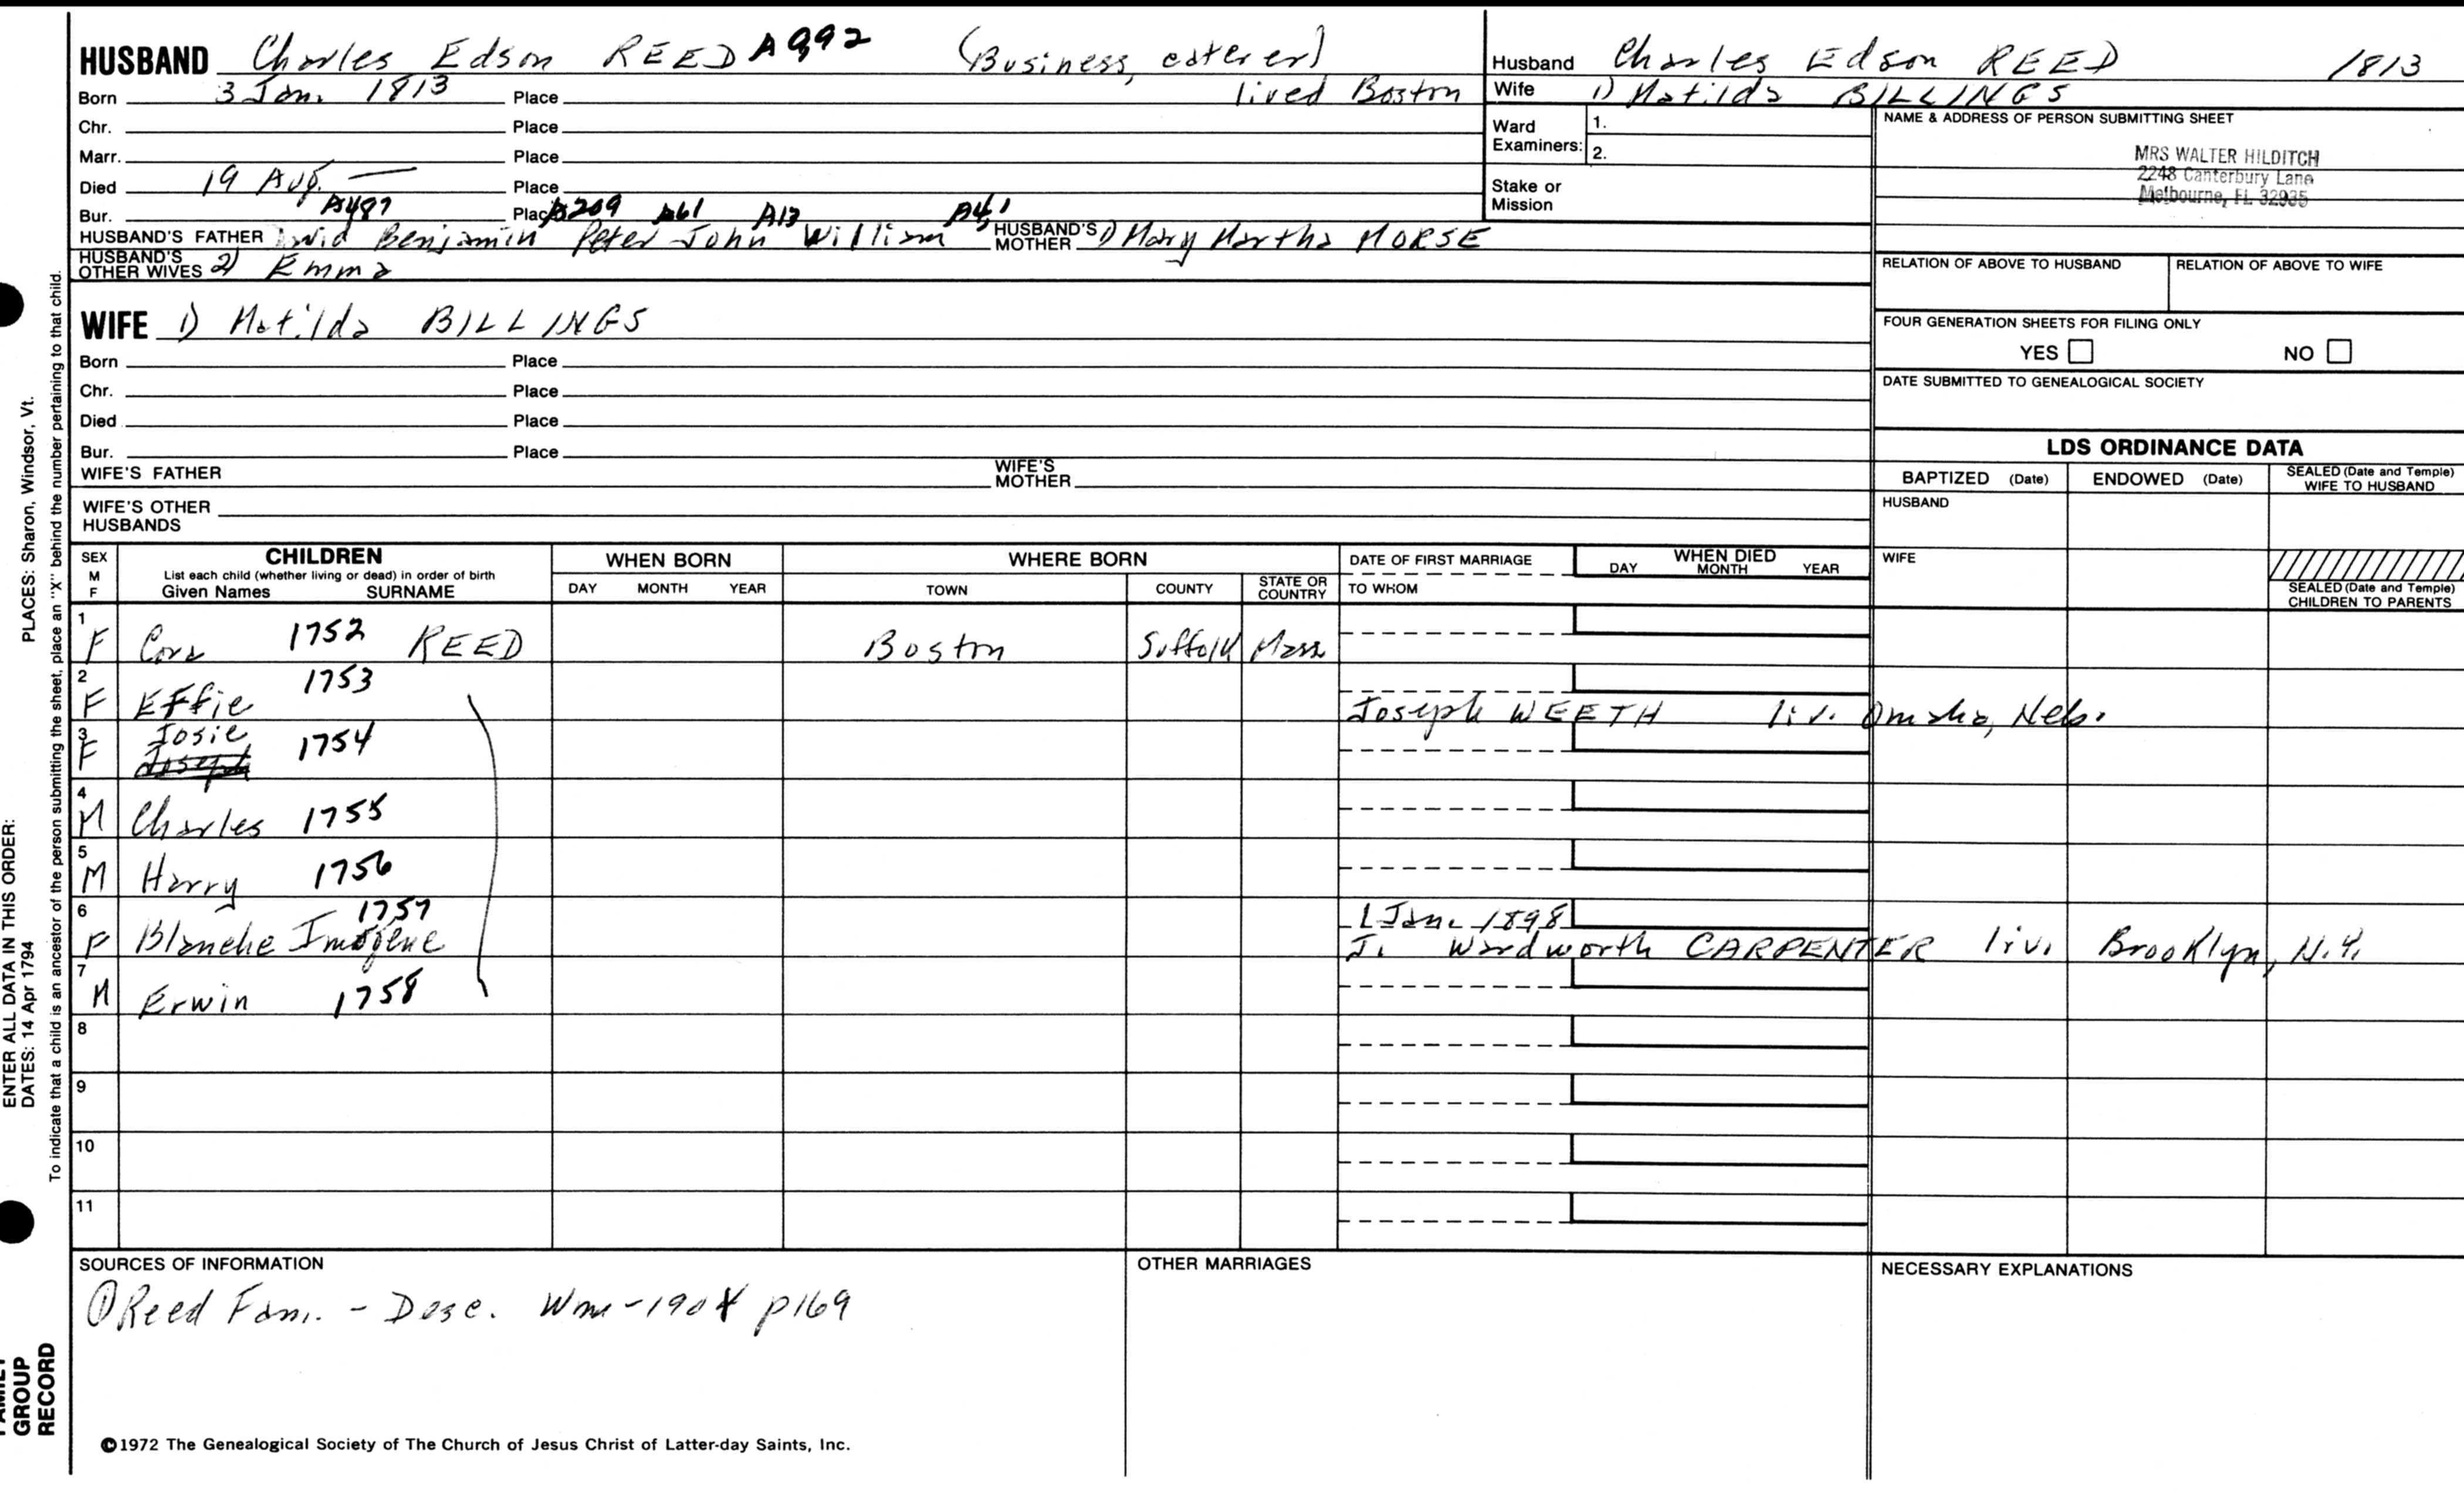 HUSBAND Charles Edson REED A992 (Business, caterer)
Born 3 Jan. 1813 Place lived Boston
Chr. Place
Marr. Place
Died 19 Aug. — Place
Bur. A487 Place A209 A61 A13 A4,1
HUSBAND'S FATHER David Benjamin Peter John William HUSBAND'S MOTHER 1) Mary Martha MORSE
HUSBAND'S OTHER WIVES 2) Emma
Husband Charles Edson REED 1813
Wife 1) Matilda BILLINGS
Ward Examiners: 1.
2.
Stake or Mission
NAME & ADDRESS OF PERSON SUBMITTING SHEET
MRS WALTER HILDITCH
2248 Canterbury Lane
Melbourne, FL 32935
RELATION OF ABOVE TO HUSBAND RELATION OF ABOVE TO WIFE
FOUR GENERATION SHEETS FOR FILING ONLY
YES NO
DATE SUBMITTED TO GENEALOGICAL SOCIETY
WIFE 1) Matilda BILLINGS
Born Place
Chr. Place
Died Place
Bur. Place
WIFE'S FATHER WIFE'S MOTHER
WIFE'S OTHER HUSBANDS
LDS ORDINANCE DATA
BAPTIZED (Date) ENDOWED (Date) SEALED (Date and Temple) WIFE TO HUSBAND
HUSBAND
WIFE
SEALED (Date and Temple) CHILDREN TO PARENTS
SEX M F
CHILDREN
List each child (whether living or dead) in order of birth
Given Names SURNAME
WHEN BORN
DAY MONTH YEAR
WHERE BORN
TOWN COUNTY STATE OR COUNTRY
DATE OF FIRST MARRIAGE
TO WHOM
WHEN DIED
DAY MONTH YEAR
1 F Cora 1752 REED Boston Suffolk Mass
2 F Effie 1753 Joseph WEETH liv. Omaha, Neb.
3 F Josie 1754
Joseph
4 M Charles 1755
5 M Harry 1756
6 F Blanche Imogene 1757 1 Jan. 1898
J. Wardworth CARPENTER liv. Brooklyn, N.Y.
7 M Erwin 1758
8
9
10
11
SOURCES OF INFORMATION
① Reed Fam. - Desc. Wm - 1904 p169
OTHER MARRIAGES
NECESSARY EXPLANATIONS
©1972 The Genealogical Society of The Church of Jesus Christ of Latter-day Saints, Inc.
ENTER ALL DATA IN THIS ORDER:
DATES: 14 Apr 1794 PLACES: Sharon, Windsor, Vt.
To indicate that a child is an ancestor of the person submitting the sheet, place an "X" behind the number pertaining to that child.
FAMILY
GROUP
RECORD